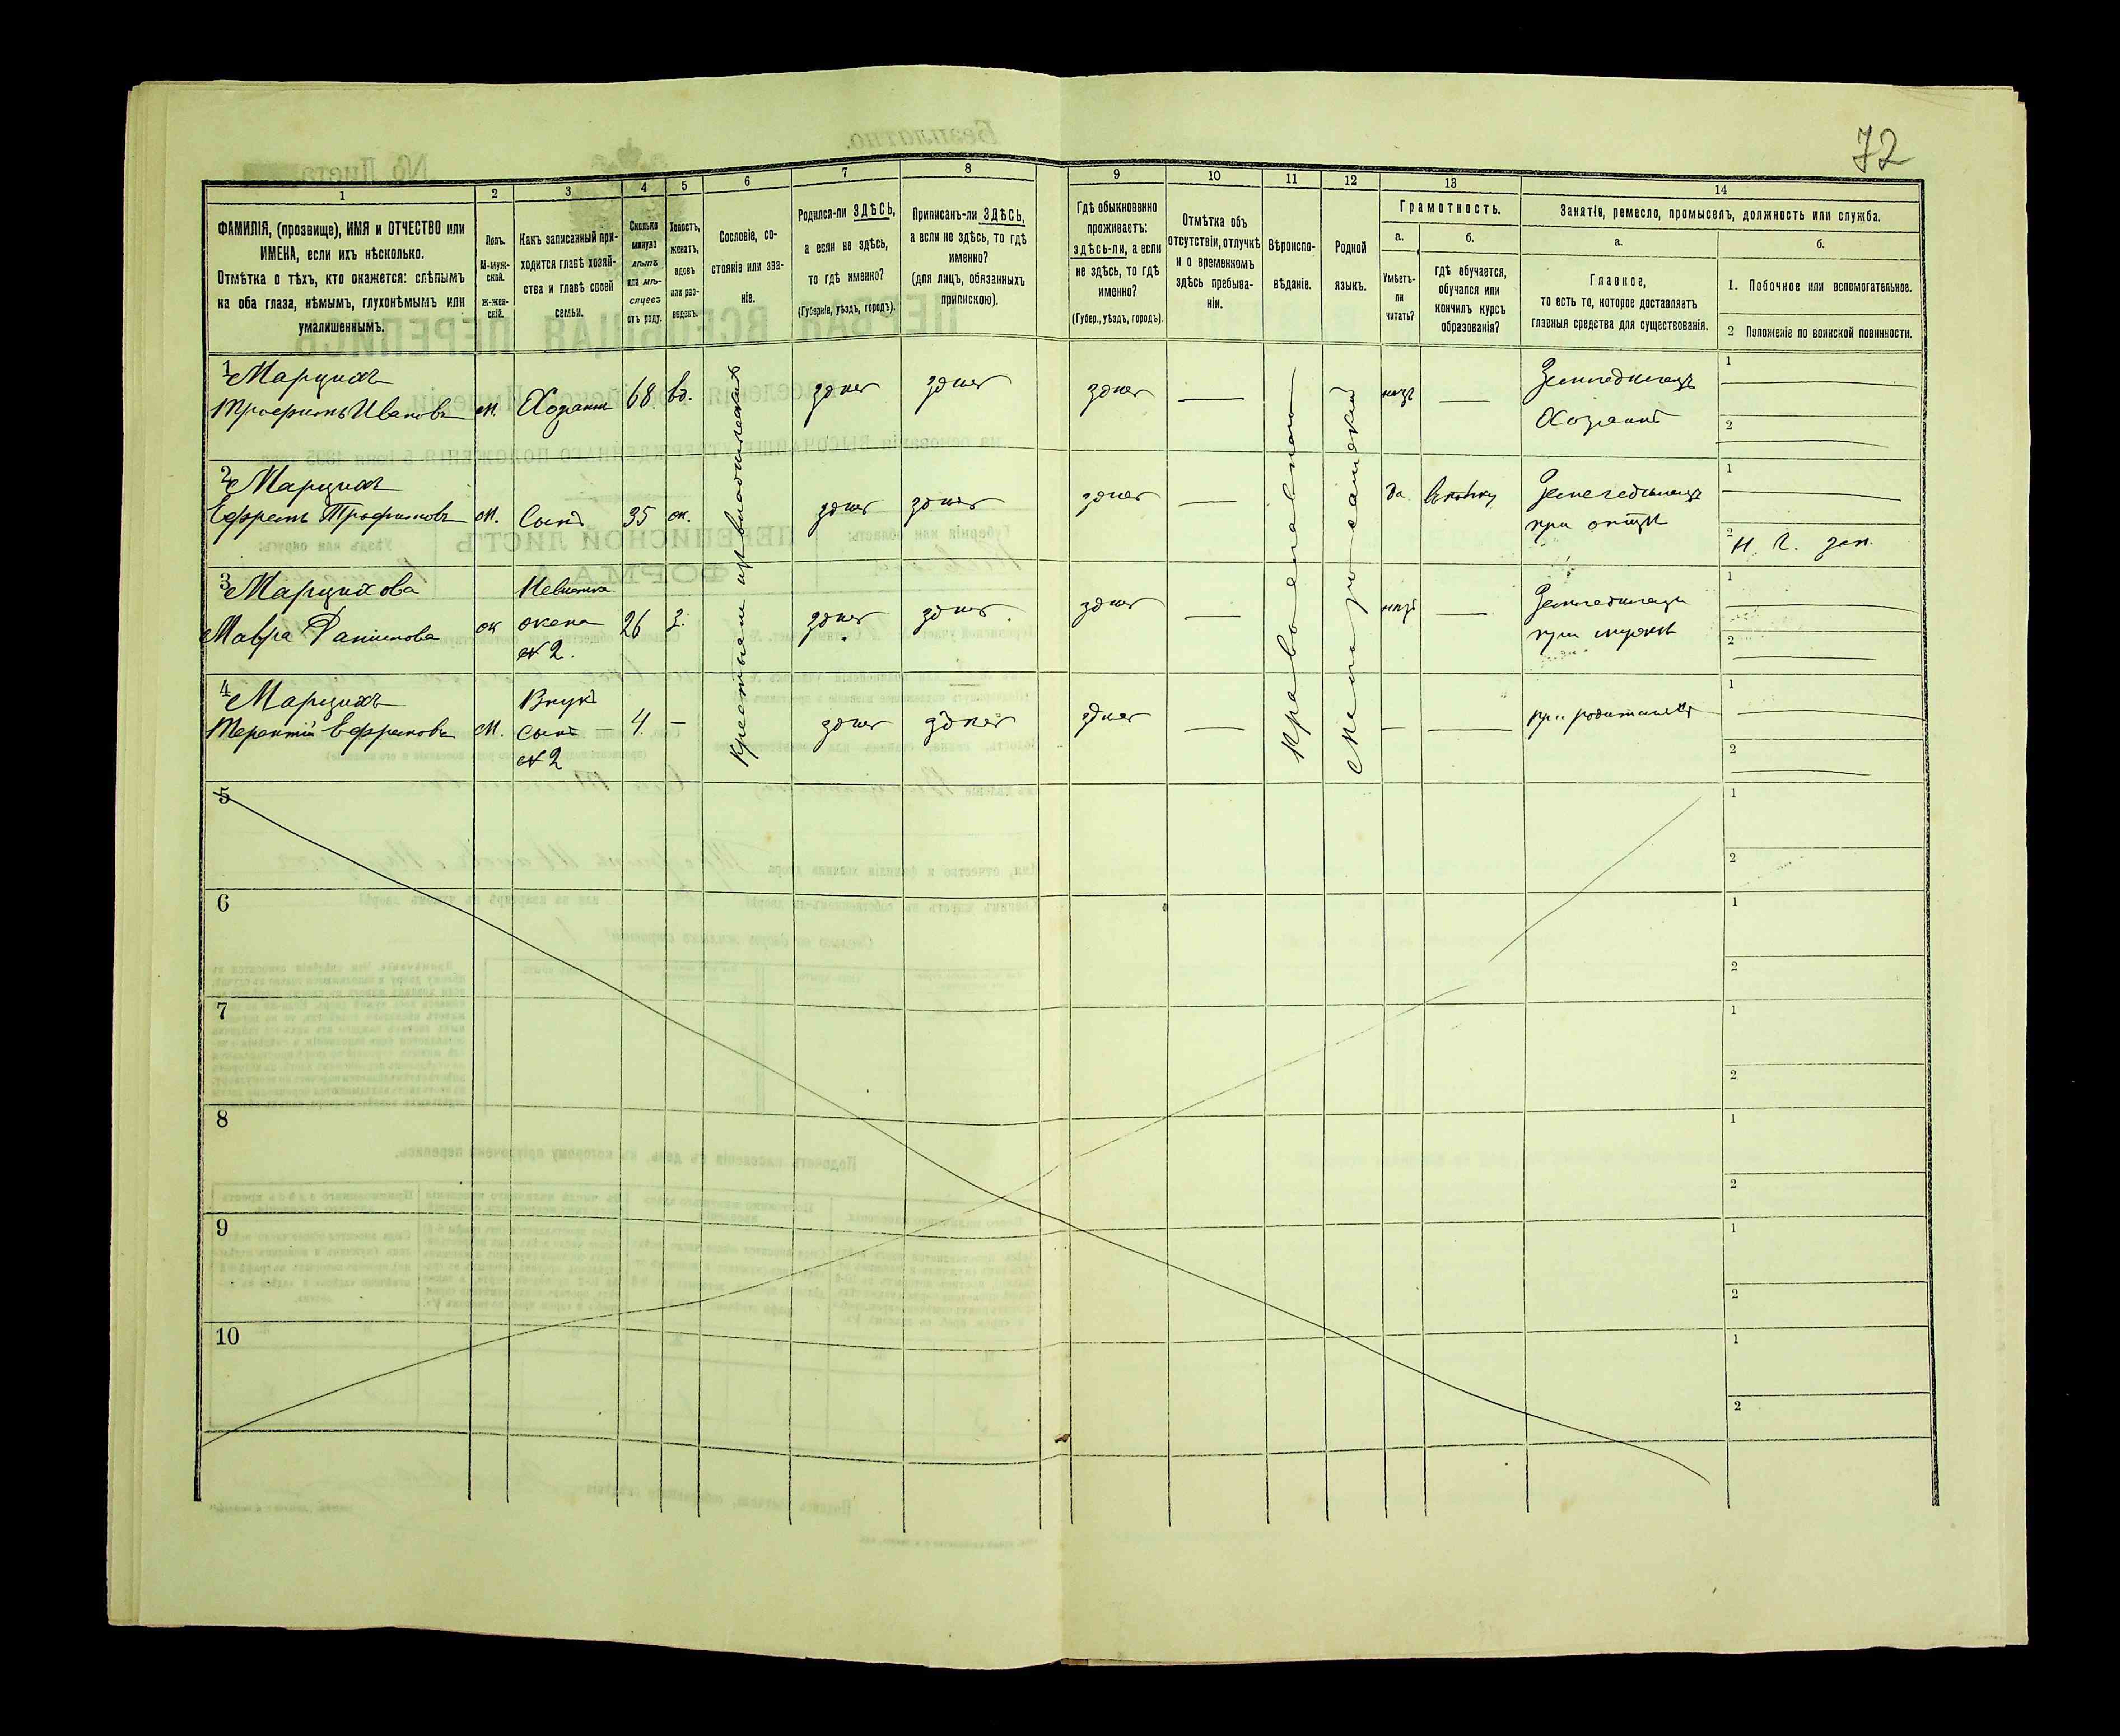 72
1 2 3 4 5 6 7 8 9 10 11 12 13 14
ФАМИЛІЯ, (прозвище), ИМЯ и ОТЧЕСТВО или
ИМЕНА, если ихъ нѣсколько.
Отмѣтка о тѣхъ, кто окажется: слѣпымъ
на оба глаза, нѣмымъ, глухонѣмымъ или
умалишеннымъ.
Полъ.
М-муж-
ской.
ж-жен-
скій.
Какъ записанный при-
ходится главѣ хозяй-
ства и главѣ своей
семьи.
Сколько
минуло
лѣтъ
или мѣ-
сяцевъ
отъ роду.
Холостъ,
женатъ,
вдовъ
или раз-
веденъ.
Сословіе, со-
стояніе или зва-
ніе.
Родился-ли ЗДѢСЬ,
а если не здѣсь,
то гдѣ именно?
(Губернія, уѣздъ, городъ).
Приписанъ-ли ЗДѢСЬ,
а если не здѣсь, то гдѣ
именно?
(для лицъ, обязанныхъ
припискою).
Гдѣ обыкновенно
проживаетъ:
здѣсь-ли, а если
не здѣсь, то гдѣ
именно?
(Губер., уѣздъ, городъ).
Отмѣтка объ
отсутствіи, отлучкѣ
и о временномъ
здѣсь пребыва-
ніи.
Вѣроиспо-
вѣданіе.
Родной
языкъ.
Грамотность.
а.
Умѣетъ-
ли
читать?
б.
гдѣ обучается,
обучался или
кончилъ курсъ
образованія?
Занятіе, ремесло, промыселъ, должность или служба.
а.
Главное,
то есть то, которое доставляетъ
главныя средства для существованія.
б.
1. Побочное или вспомогательное.
2 Положеніе по воинской повинности.
1 Марцихъ
Трофимъ Ивановъ м. Хозяинъ 68 вд. здѣсь здѣсь здѣсь — нѣтъ — Земледѣлецъ
Хозяинъ
1
2
2 Марцихъ
Ефремъ Трофимовъ м. Сынъ 35 ж. здѣсь здѣсь здѣсь — да Земледѣлецъ
при отцѣ
1
2
3 Марцихова
Мавра Данилова ж Невѣстка
жена
№ 2. 26 з. здѣсь здѣсь здѣсь — нѣтъ — Земледѣлецъ
при мужѣ
1
2
4 Марцихъ
Терентій Ефремовъ м. Внукъ
сынъ —
№ 2 4. — здѣсь здѣсь здѣсь — — — при родителяхъ
1
2
Крестьяне
Православное
Малороссійскій
5 1
2
6 1
2
7 1
2
8 1
2
9 1
2
10 1
2